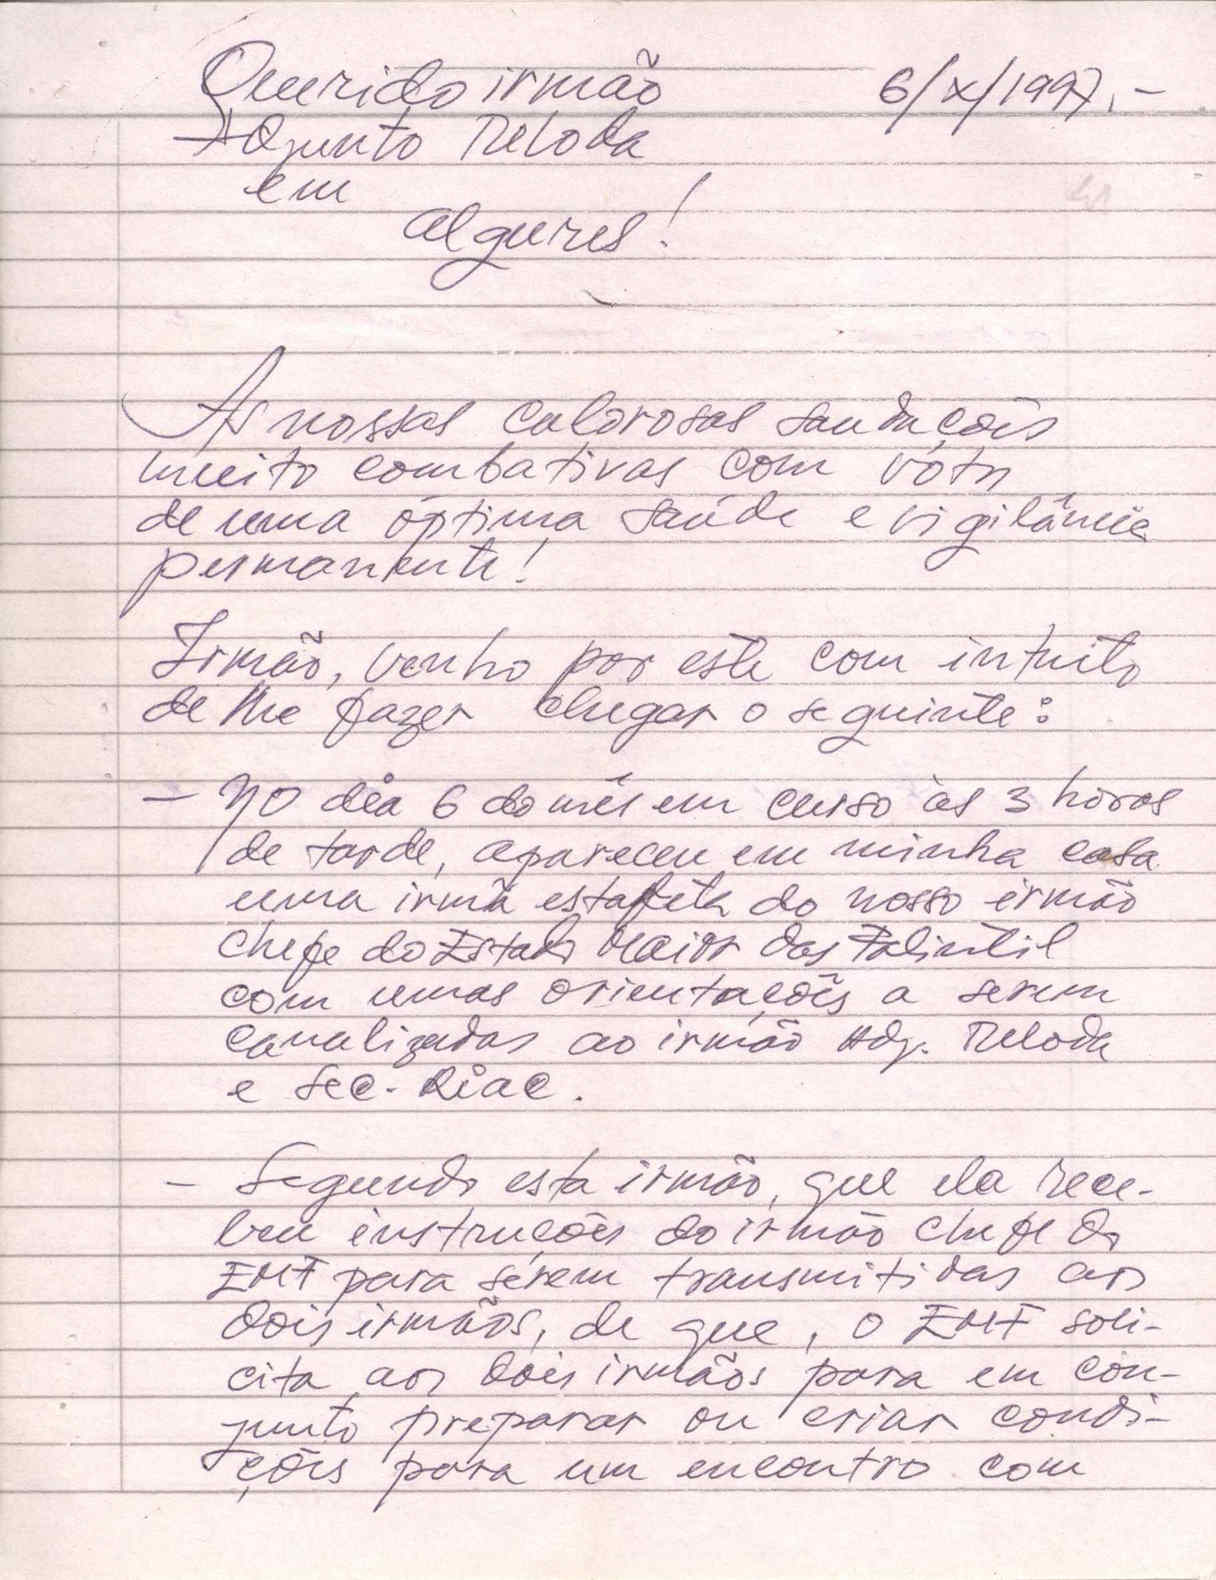 Querido irmão 6/X/1997.-
Adjunto Meloda
em
algures!
As nossas calorosas saudações
muito combativas com voto
de uma óptima saúde e vigilância
permanente!
Irmão, venho por este com intuito
de lhe fazer chegar o seguinte:
- No dia 6 do mês em curso às 3 horas
de tarde, apareceu em minha casa
uma irmã estafeta do nosso irmão
chefe do Estado Maior das Falintil
com umas orientações a serem
canalizadas ao irmão Adj. Meloda
e Sec. Riac.
- Segundo esta irmão, que ela rece-
beu instruções do irmão chefe do
EMF para serem transmitidas aos
dois irmãos, de que, o EMF soli-
cita aos dois irmãos para em con-
junto preparar ou criar condi-
ções para um encontro com